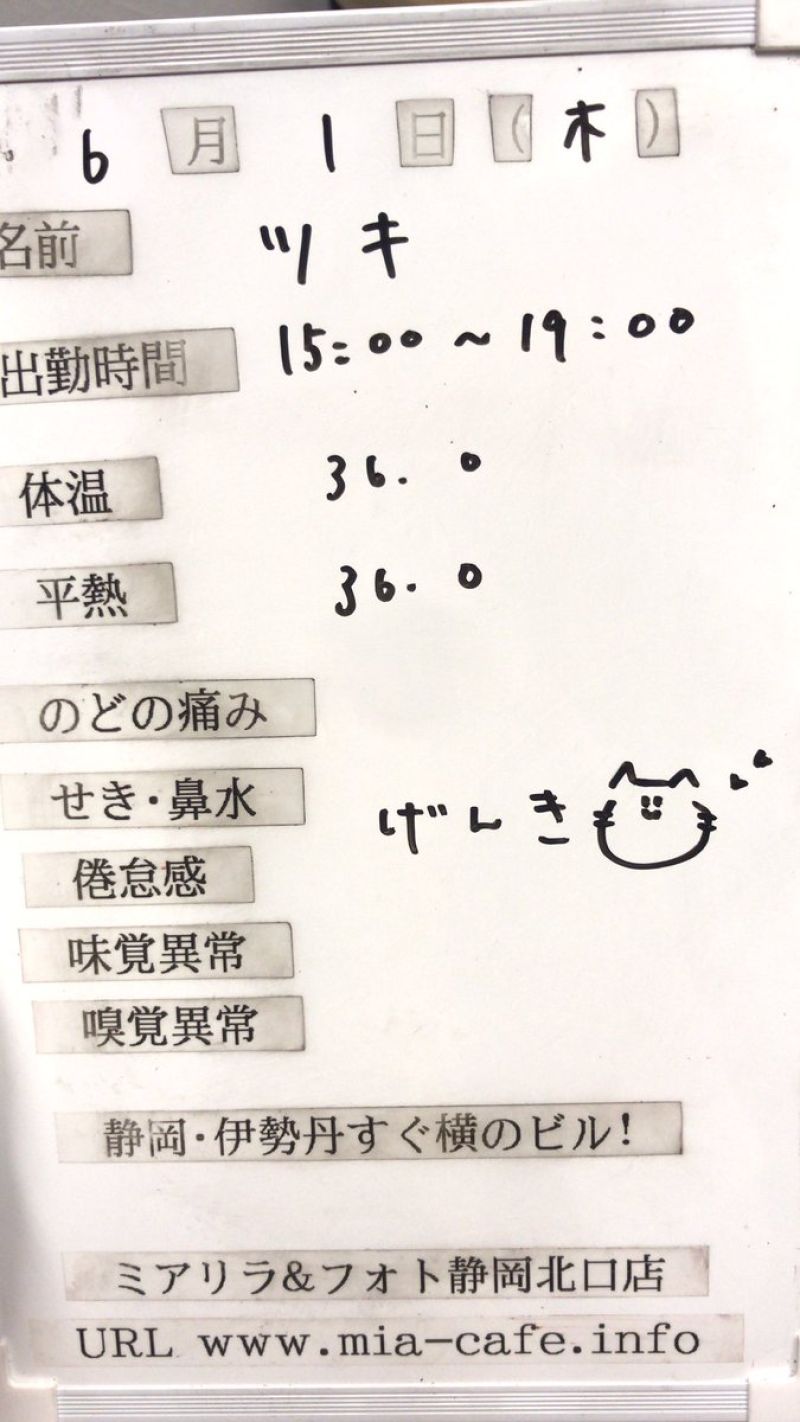 6月1日(木)
名前 ツキ
出勤時間 15:00~19:00
体温 36.0
平熱 36.0
のどの痛み
せき・鼻水 げんき
倦怠感
味覚異常
嗅覚異常
静岡・伊勢丹すぐ横のビル!
ミアリラ&フォト静岡北口店
URL www.mia-cafe.info